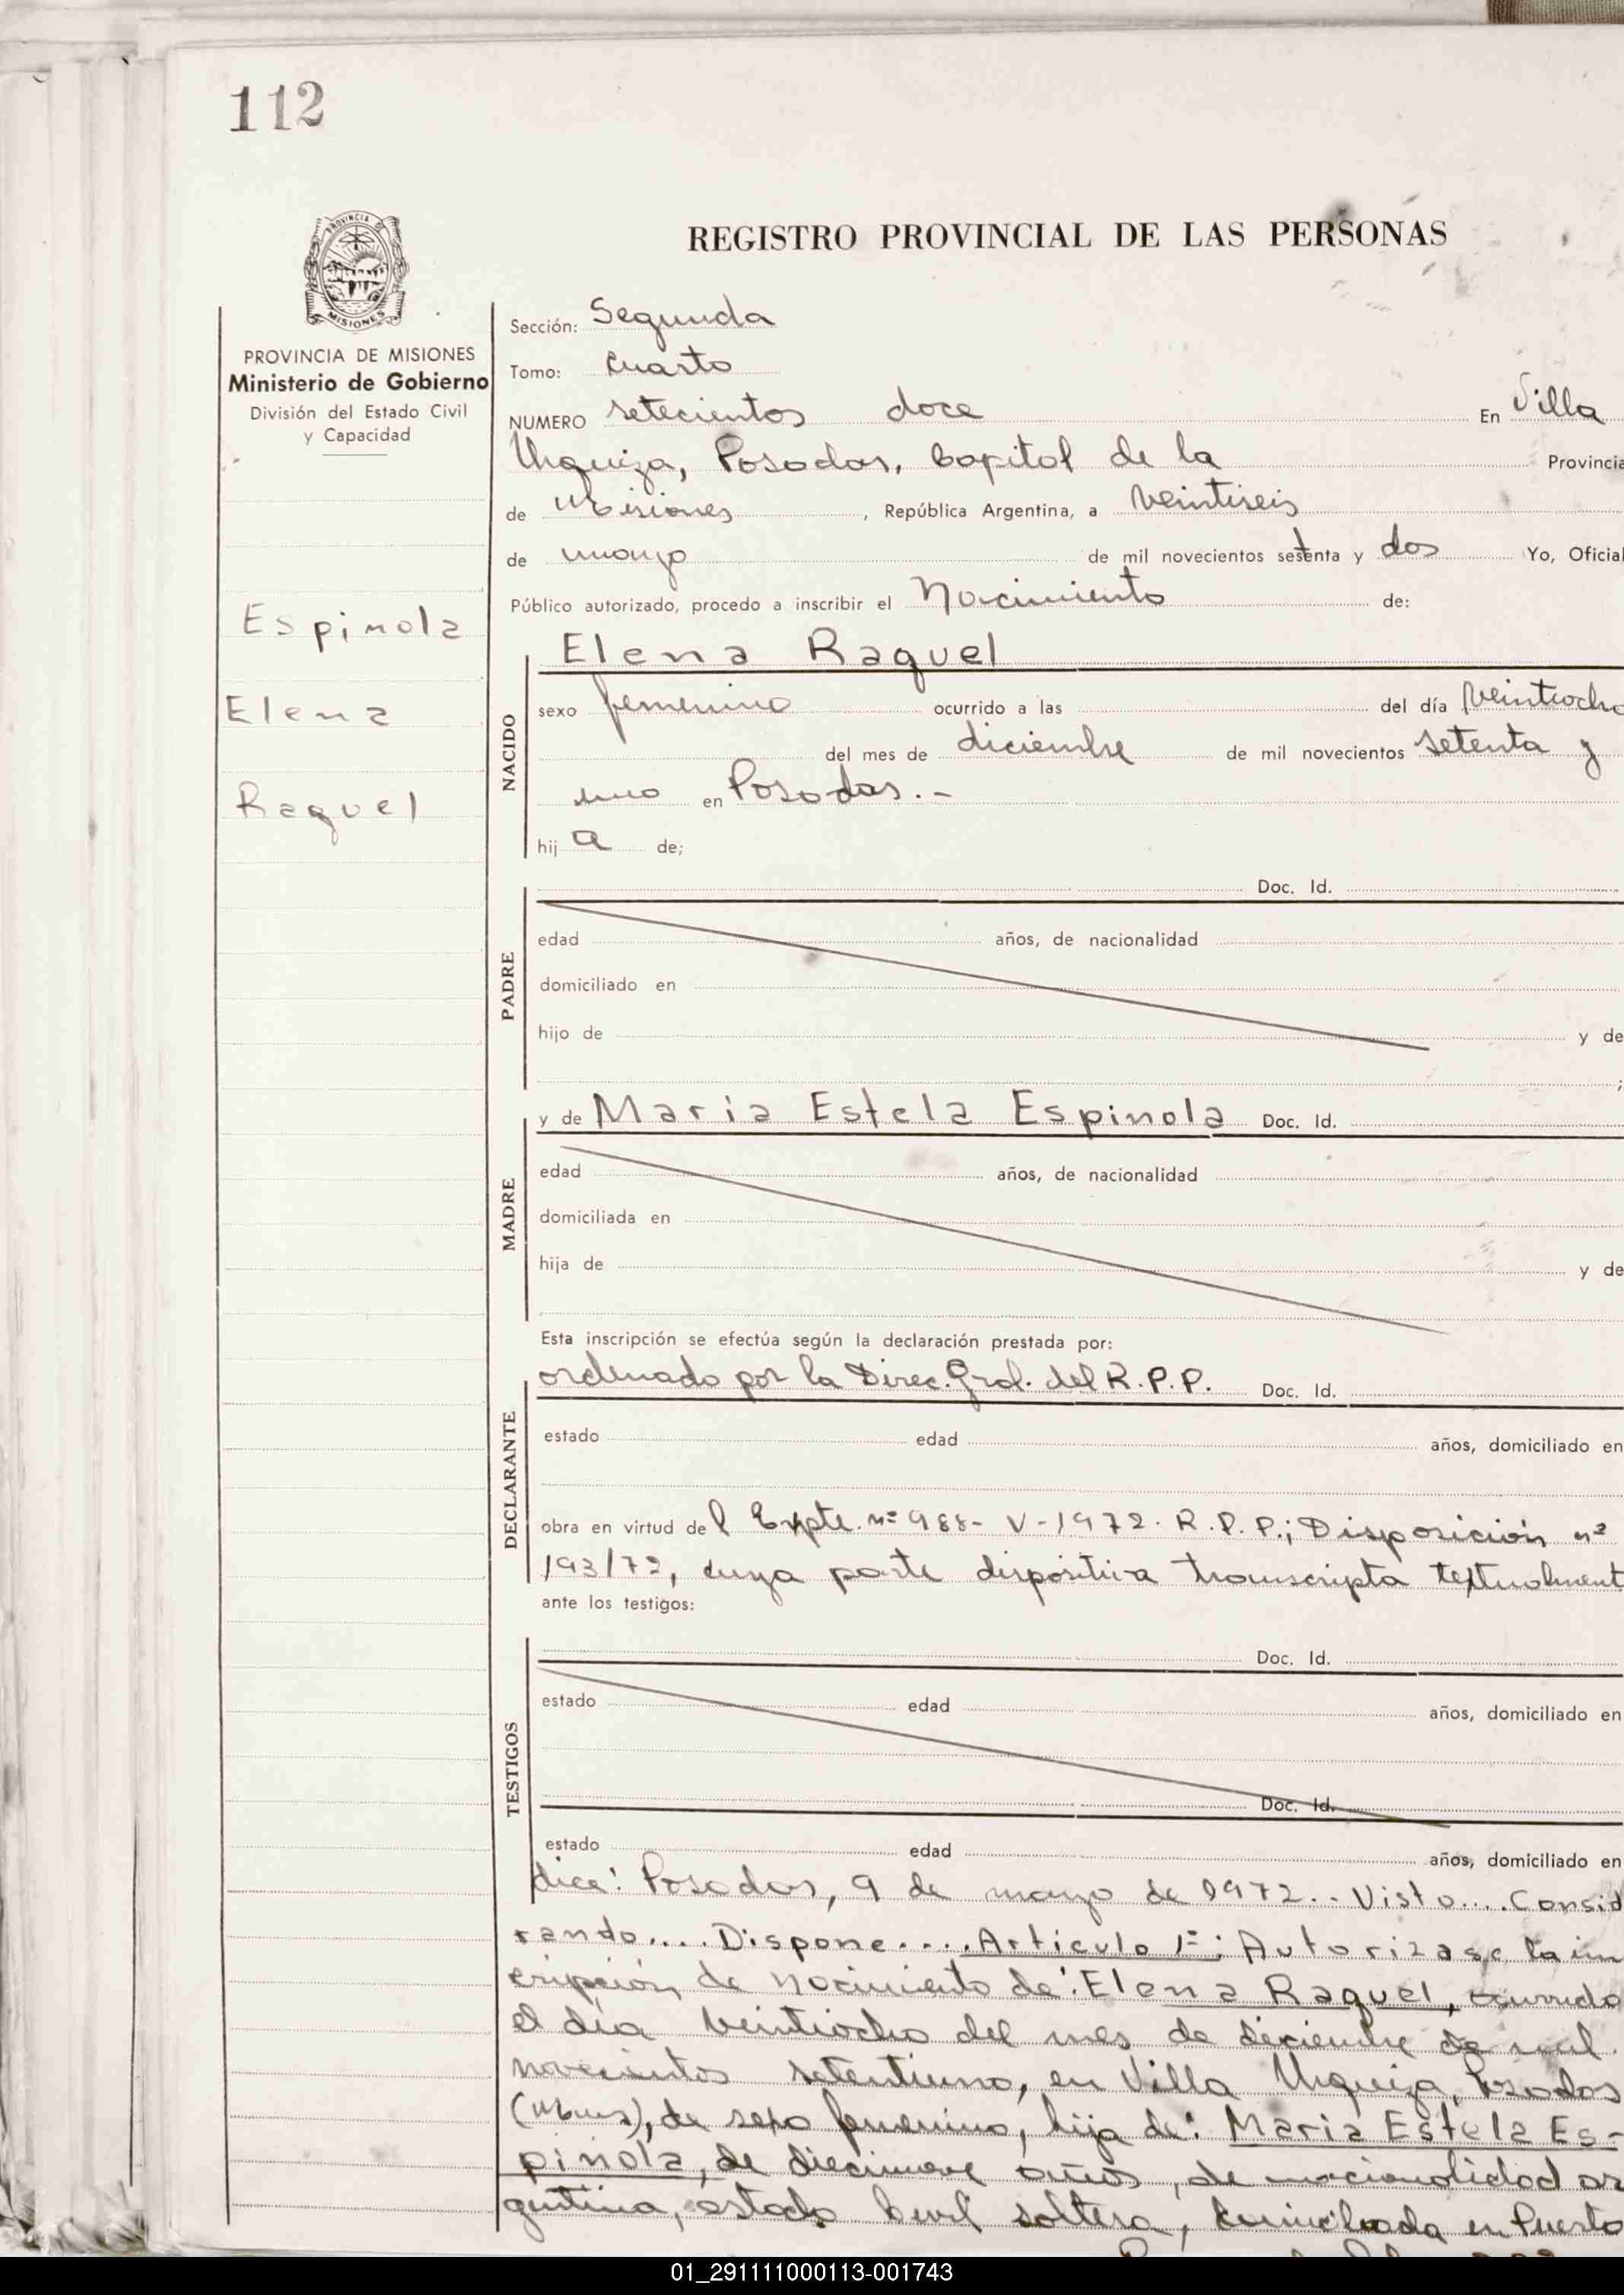 112
PROVINCIA DE
MISIONES
REGISTRO PROVINCIAL DE LAS PERSONAS
PROVINCIA DE MISIONES
Ministerio de Gobierno
División del Estado Civil
y Capacidad
Espinola
Elena
Raquel
Sección: Segunda
Tomo: Cuarto
NUMERO setecientos doce En Villa
Urquiza, Posadas, Capital de la Provincia
de Misiones, República Argentina, a veintiseis
de mayo de mil novecientos setenta y dos Yo, Oficial
Público autorizado, procedo a inscribir el Nacimiento de:
NACIDO
Elena Raquel
sexo femenino ocurrido a las del día veintiocho
del mes de diciembre de mil novecientos setenta y
uno en Posadas.-
hij a de;
PADRE
Doc. Id.
edad años, de nacionalidad
domiciliado en
hijo de y de
;
MADRE
y de Maria Estela Espinola Doc. Id.
edad años, de nacionalidad
domiciliada en
hija de y de
Esta inscripción se efectúa según la declaración prestada por:
DECLARANTE
ordenado por la Direc. Gral. del R.P.P. Doc. Id.
estado edad años, domiciliado en
obra en virtud del Expte. nº 988- V-1972. R.P.P.; Disposición nº
193/72, cuya parte dispositiva transcripta textualment
ante los testigos:
TESTIGOS
Doc. Id.
estado edad años, domiciliado en
Doc. Id.
estado edad años, domiciliado en
dice: Posadas, 9 de mayo de 1972.- Visto.... Consid
rando.... Dispone.... Articulo 1º: Autorizase la ins
cripción de nacimiento de: Elena Raquel, ocurrido
el día veintiocho del mes de diciembre de mil
novecientos setentiuno, en Villa Urquiza, Posadas
(Mnes), de sexo femenino, hija de: Maria Estela Es-
pinola, de diecinueve años, de nacionalidad ar
gentina, estado civil soltera, domiciliada en Puerto
01_291111000113-001743